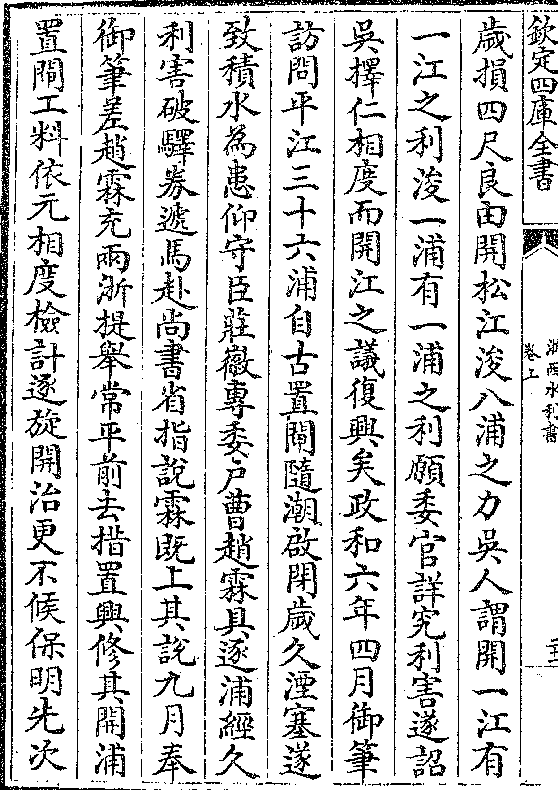 欽定四庫全書
浙西水利書
卷上
歲損四尺良由開松江浚八浦之力吳人謂開一江有
一江之利浚一浦有一浦之利願委官詳究利害遂詔
吳擇仁相度而開江之議復興矣政和六年四月御筆
訪問平江三十六浦自古置閘隨潮啟閉歲久湮塞遂
致積水為患仰守臣莊徽專委户曹趙霖具逐浦經久
利害破驛劵遞馬赴尚書省指說霖既上其說九月奉
御筆差趙霖充兩浙提舉常平前去措置興修其開浦
置閘工料依元相度檢計逐旋開治更不候保明先次